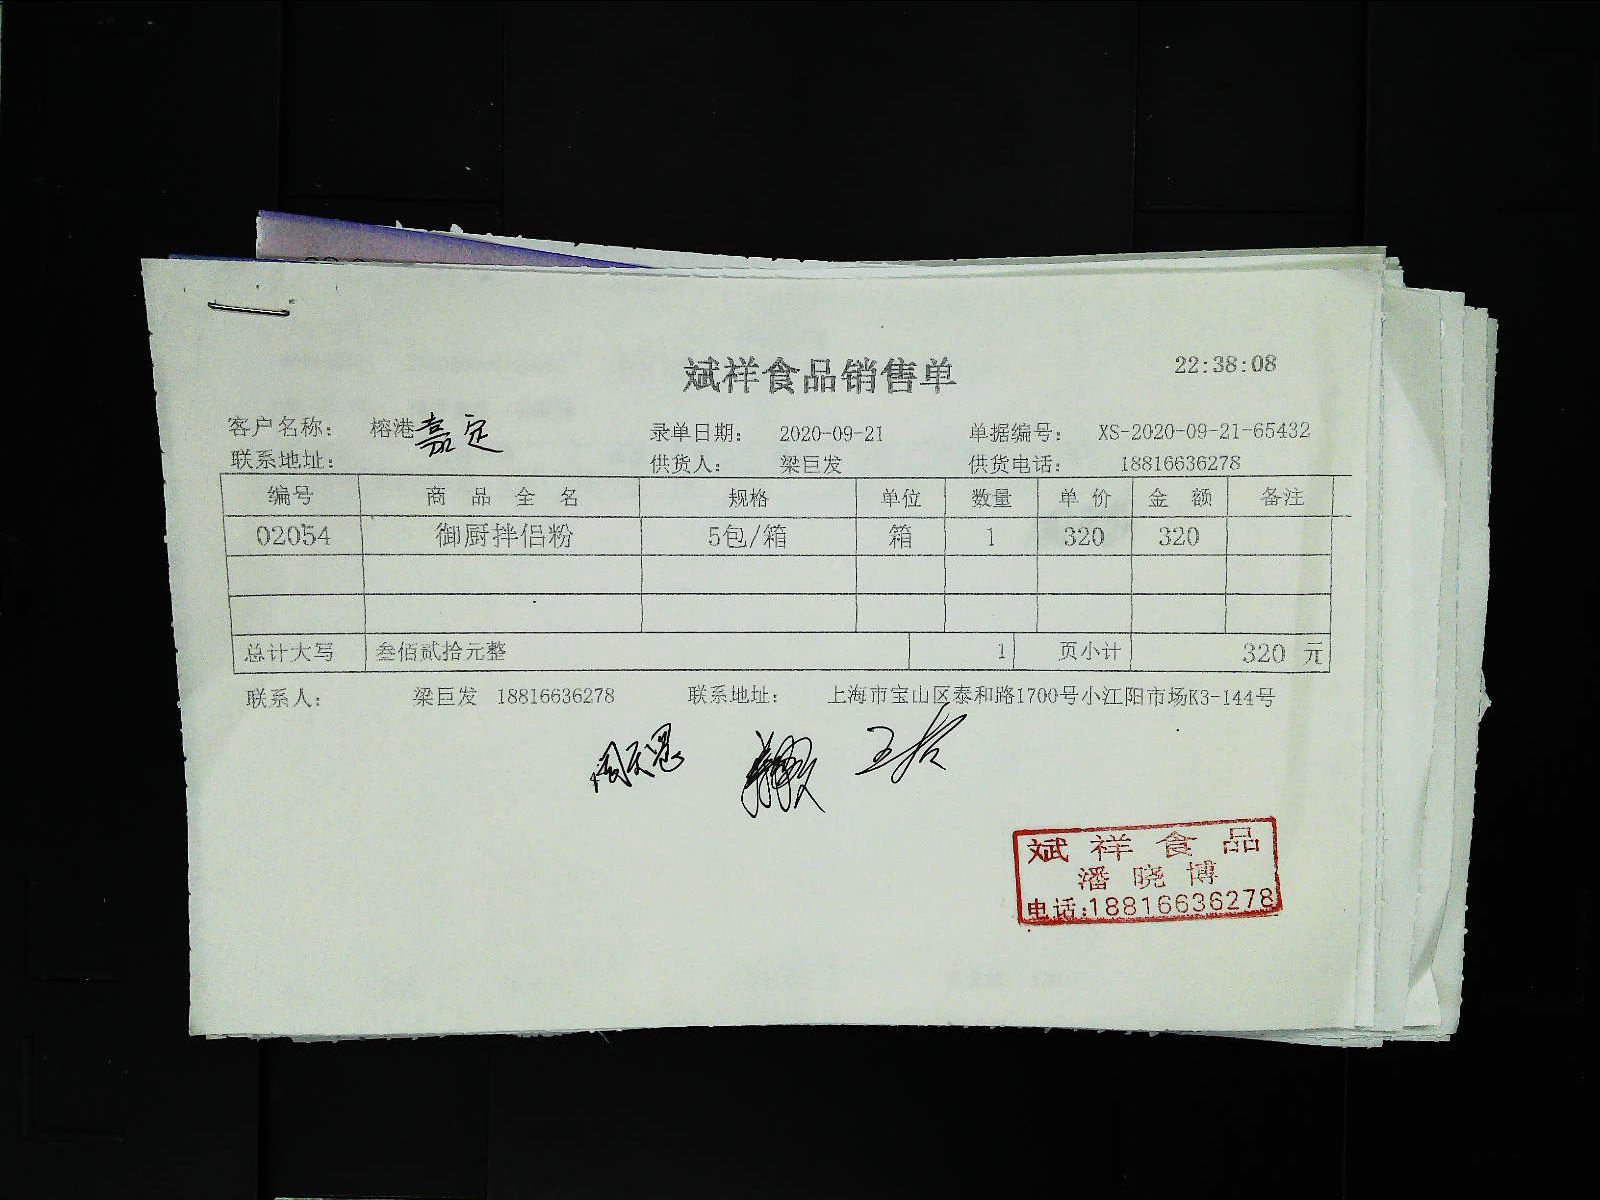 斌祥食品销售单
22:38:08
客户名称： 榕港嘉定 录单日期： 2020-09-21 单据编号： XS-2020-09-21-65432
联系地址： 供货人： 梁巨发 供货电话： 18816636278
编号 商品全名 规格 单位 数量 单价 金额 备注
02054 御厨拌侣粉 5包/箱 箱 1 320 320
总计大写 叁佰贰拾元整 1 页小计 320 元
联系人： 梁巨发 18816636278 联系地址： 上海市宝山区泰和路1700号小江阳市场K3-144号
斌祥食品
潘晓博
电话:18816636278